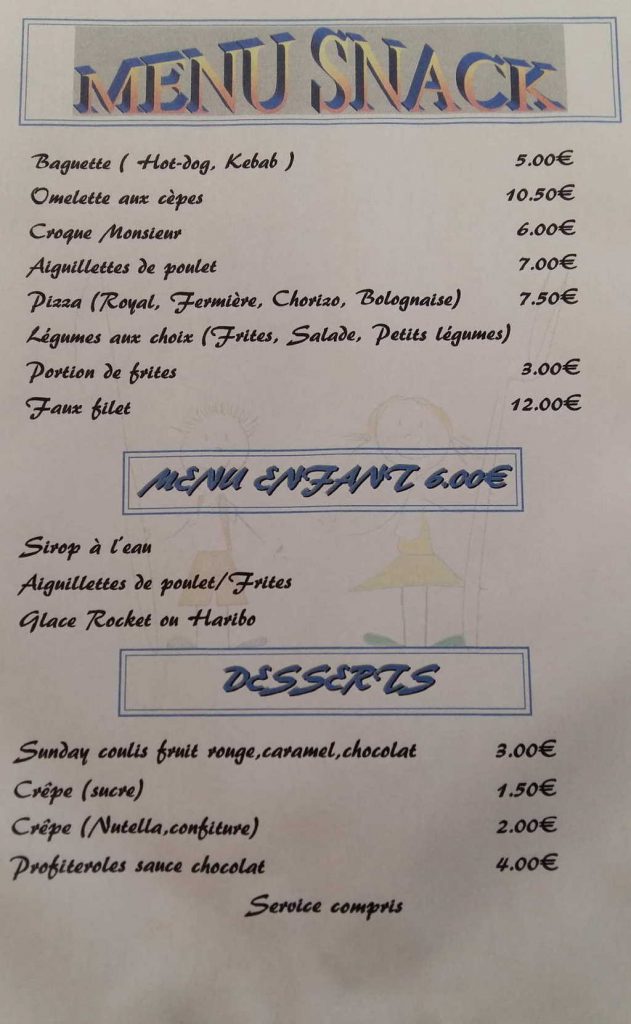 MENU SNACK
Baguette ( Hot-dog, Kebab ) 5.00€
Omelette aux cèpes 10.50€
Croque Monsieur 6.00€
Aiguillettes de poulet 7.00€
Pizza (Royal, Fermière, Chorizo, Bolognaise) 7.50€
Légumes aux choix (Frites, Salade, Petits légumes)
Portion de frites 3.00€
Faux filet 12.00€
MENU ENFANT 6.00€
Sirop à l'eau
Aiguillettes de poulet/Frites
Glace Rocket ou Haribo
DESSERTS
Sunday coulis fruit rouge,caramel,chocolat 3.00€
Crêpe (sucre) 1.50€
Crêpe (Nutella,confiture) 2.00€
Profiteroles sauce chocolat 4.00€
Service compris